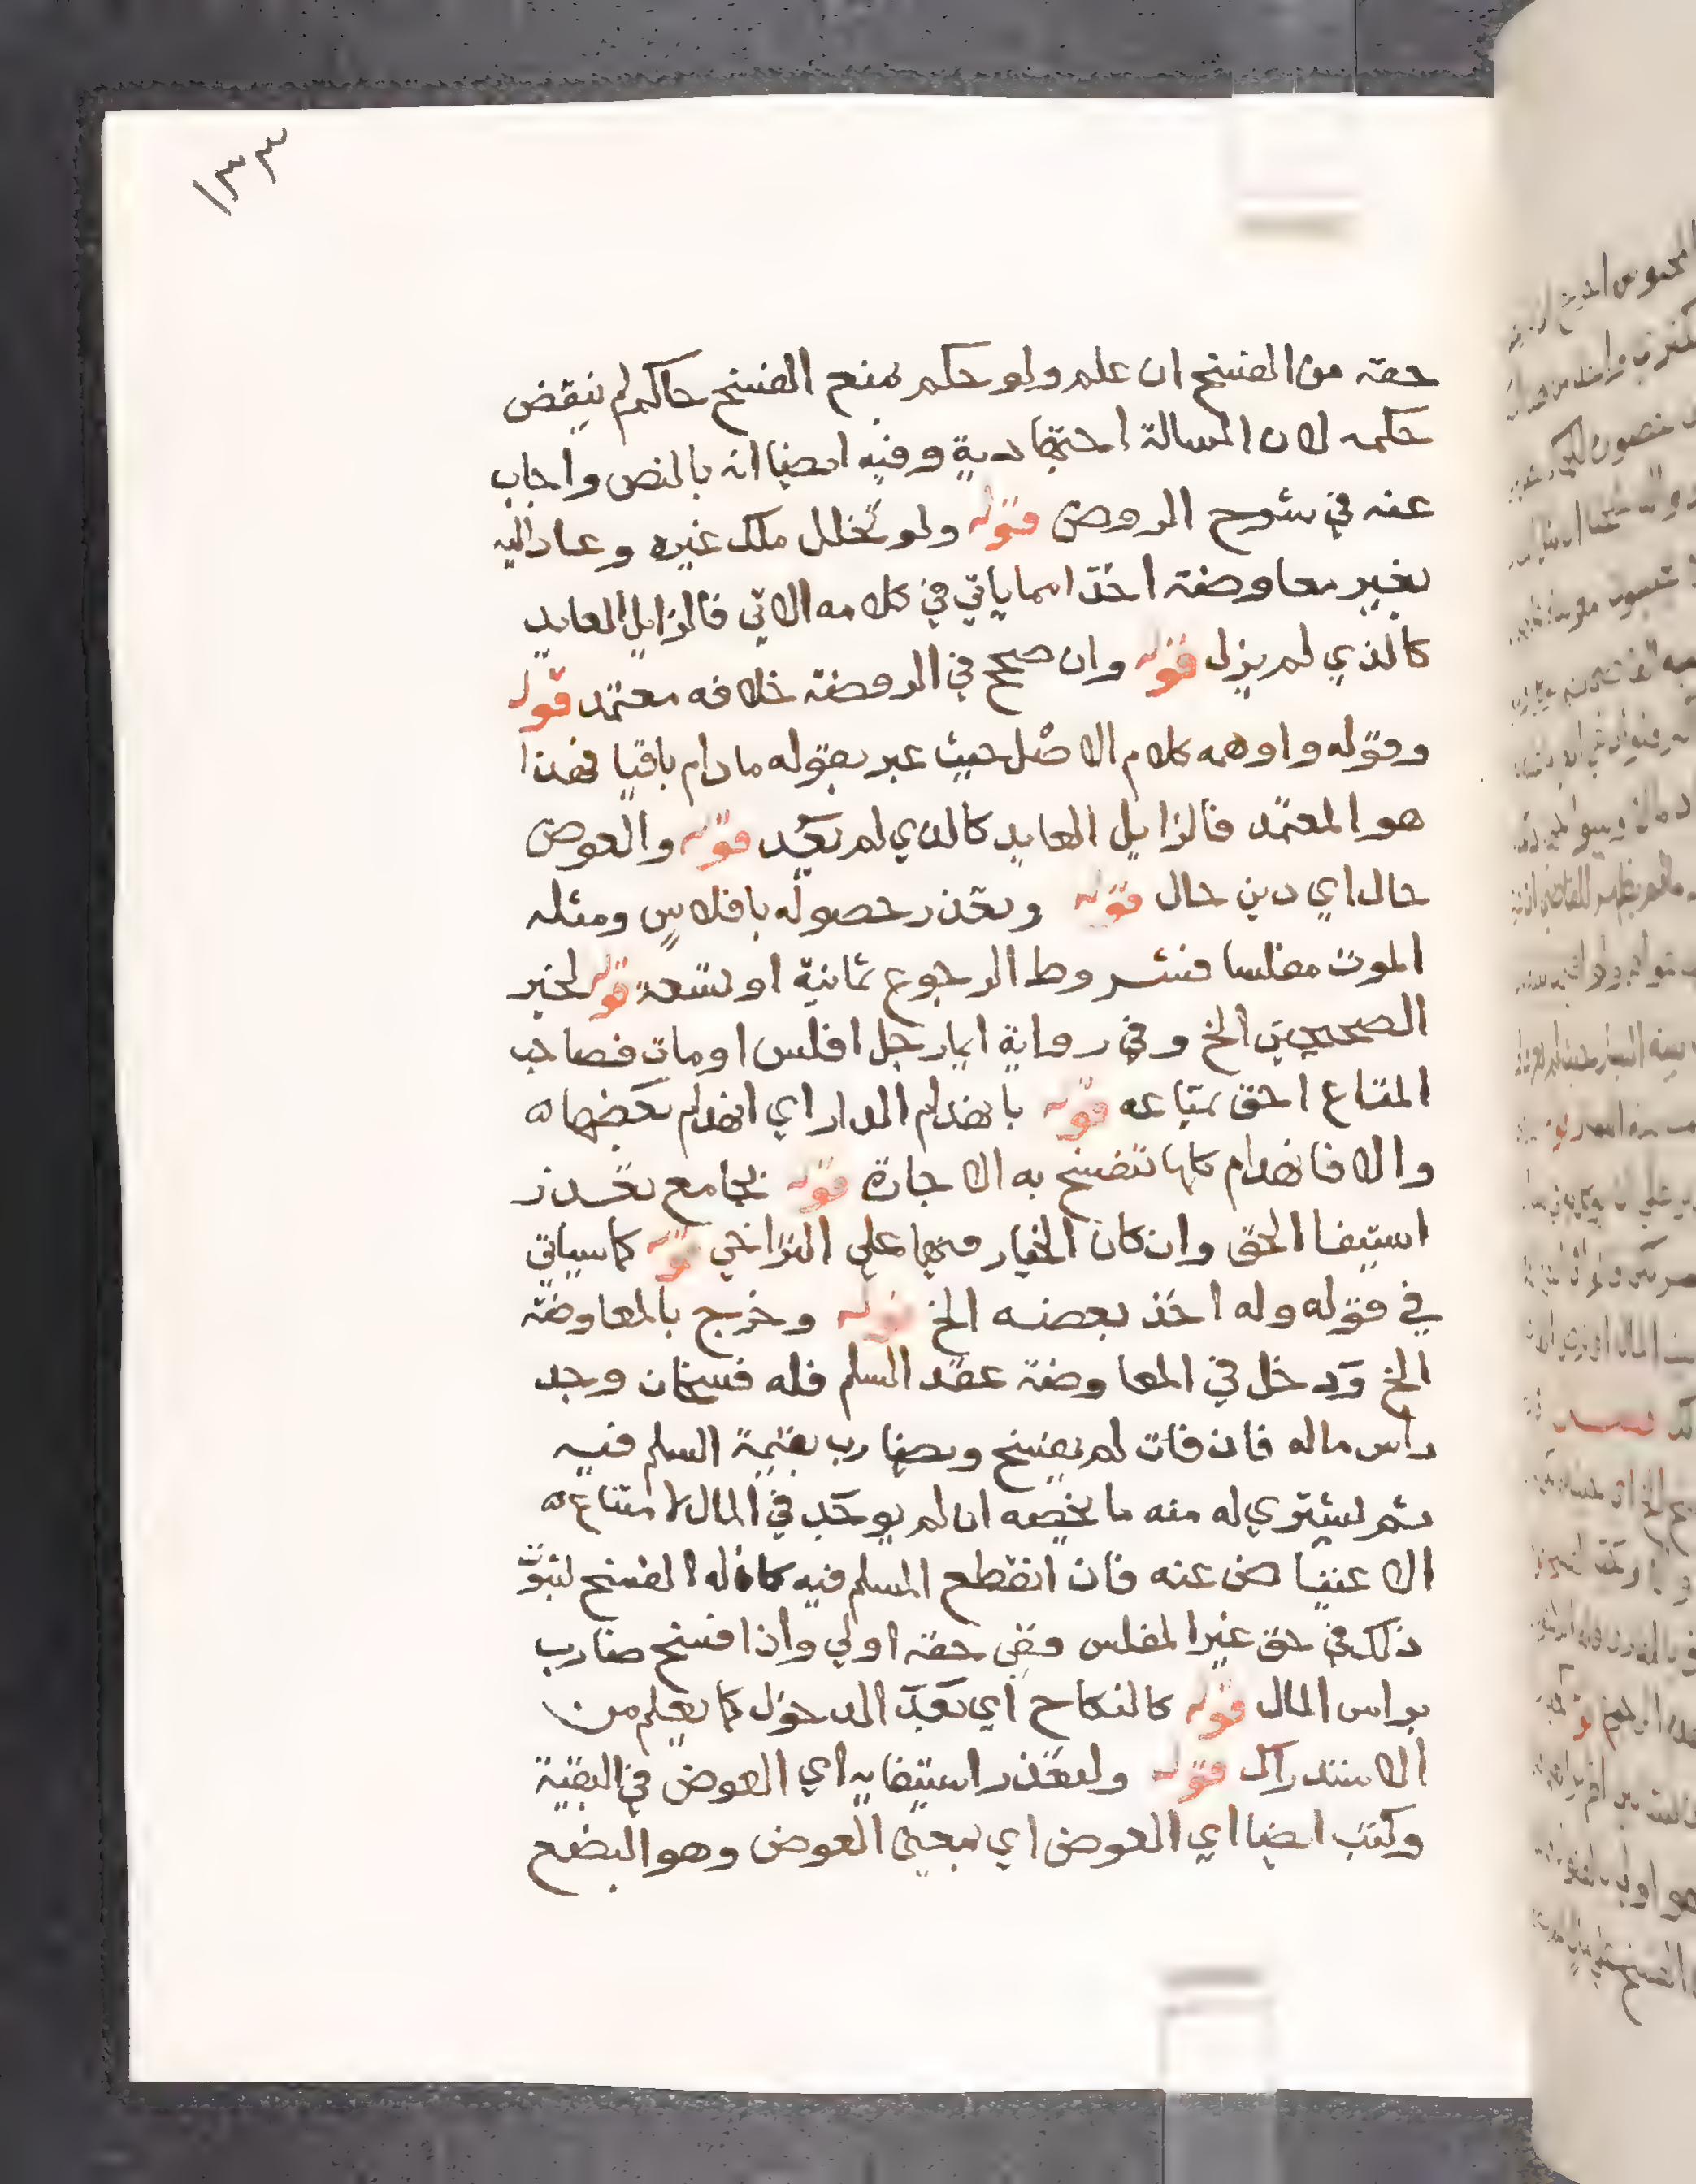 ١٣٣
حقه من الفسخ ان علم ولو حكم بمنع الفسخ حاكم لم ينقض
حكمه لان المسالة اجتهادية وفيه ايضا انه بالنص واجاب
عنه في شرح الروض قوله ولو تخلل ملك غيره وعاد اليه
بغير معاوضة اخذا مما ياتي في كلامه الاتي فالزايل العايد
كالذي لم يزل قوله وان صحح في الروضة خلافه معتمد قوله
وقوله واوهمه كلام الاصل حيث عبر بقوله ما دام باقيا فهذا
هو المعتمد فالزايل العايد كالذي لم يعد قوله والعوض
حال اي دين حال قوله وتعذر حصوله بافلاس ومثله
الموت مفلسا فشروط الرجوع ثمانية او تسعة قوله لخبر
الصحيحين الخ وفي رواية ايما رجل افلس او مات فصاحب
المتاع احق بمتاعه قوله بانهدام الدار اي انهدام بعضها ه
والا فانهدام كلها تنفسخ به الاجارة قوله بجامع تعذر
استيفا الحق وان كان الخيار فيها على التراخي قوله كما سياتي
في قوله وله اخذ بعضه الخ قوله وخرج بالمعاوضة
الخ ودخل في المعاوضة عقد السلم فله فسخه ان وجد
راس ماله فان فات لم يفسخ ويضارب بقيمة السلم فيه
ثم يشتري له منه ما يخصه ان لم يوجد في المال لامتناع ه
الاعتياض عنه فان انقطع المسلم فيه كان له الفسخ لثبوت
ذلك في حق غير المفلس ففي حقه اولي واذا فسخ ضارب
براس المال قوله كالنكاح اي بعد الدخول كما يعلم من
الاستدراك قوله ولتعذر استيفايه اي العوض في البقية
وكتب ايضا اي العوض اي بمعنى العوض وهو البضع